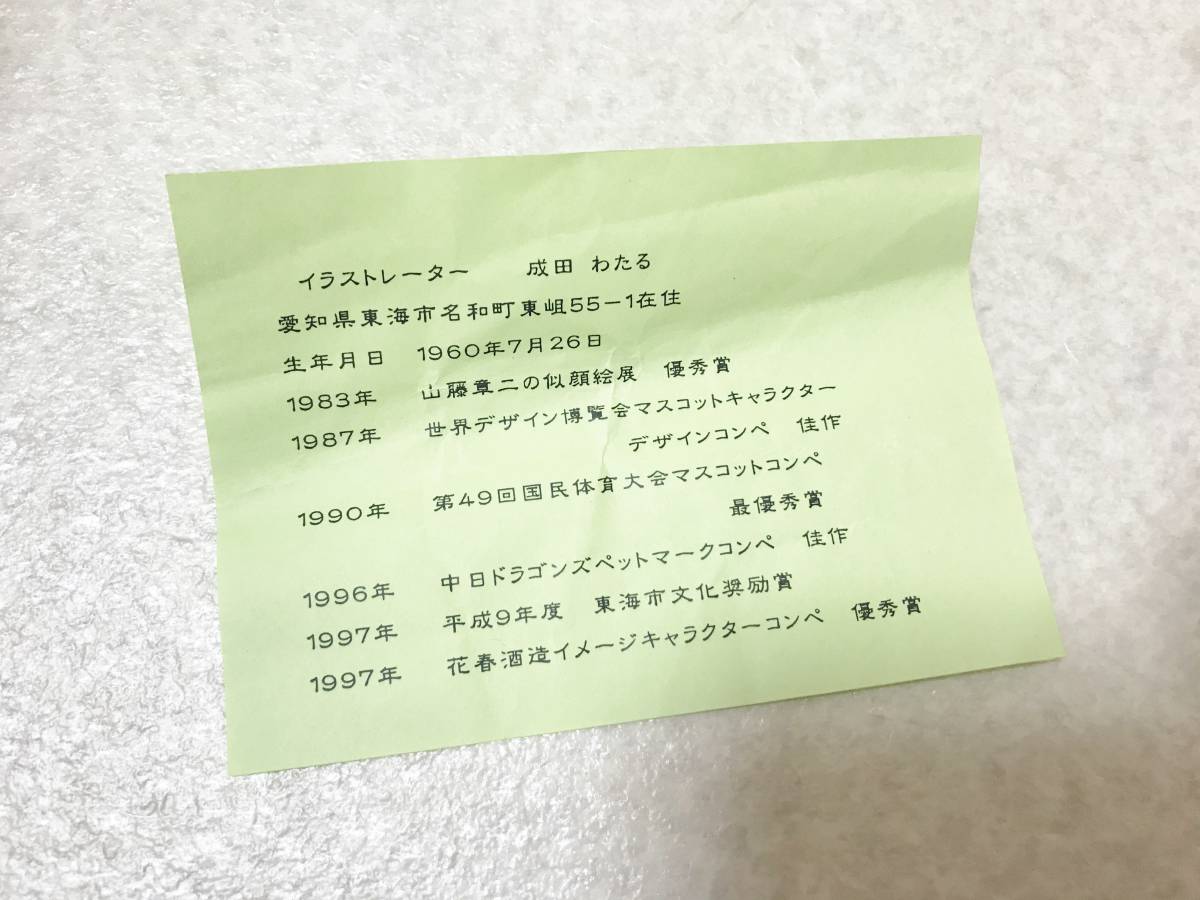 イラストレーター　成田 わたる
愛知県東海市名和町東岨55－1在住
生年月日　1960年7月26日
1983年　山藤章二の似顔絵展　優秀賞
1987年　世界デザイン博覧会マスコットキャラクター
デザインコンペ　佳作
1990年　第49回国民体育大会マスコットコンペ
最優秀賞
1996年　中日ドラゴンズペットマークコンペ　佳作
1997年　平成9年度　東海市文化奨励賞
1997年　花春酒造イメージキャラクターコンペ　優秀賞